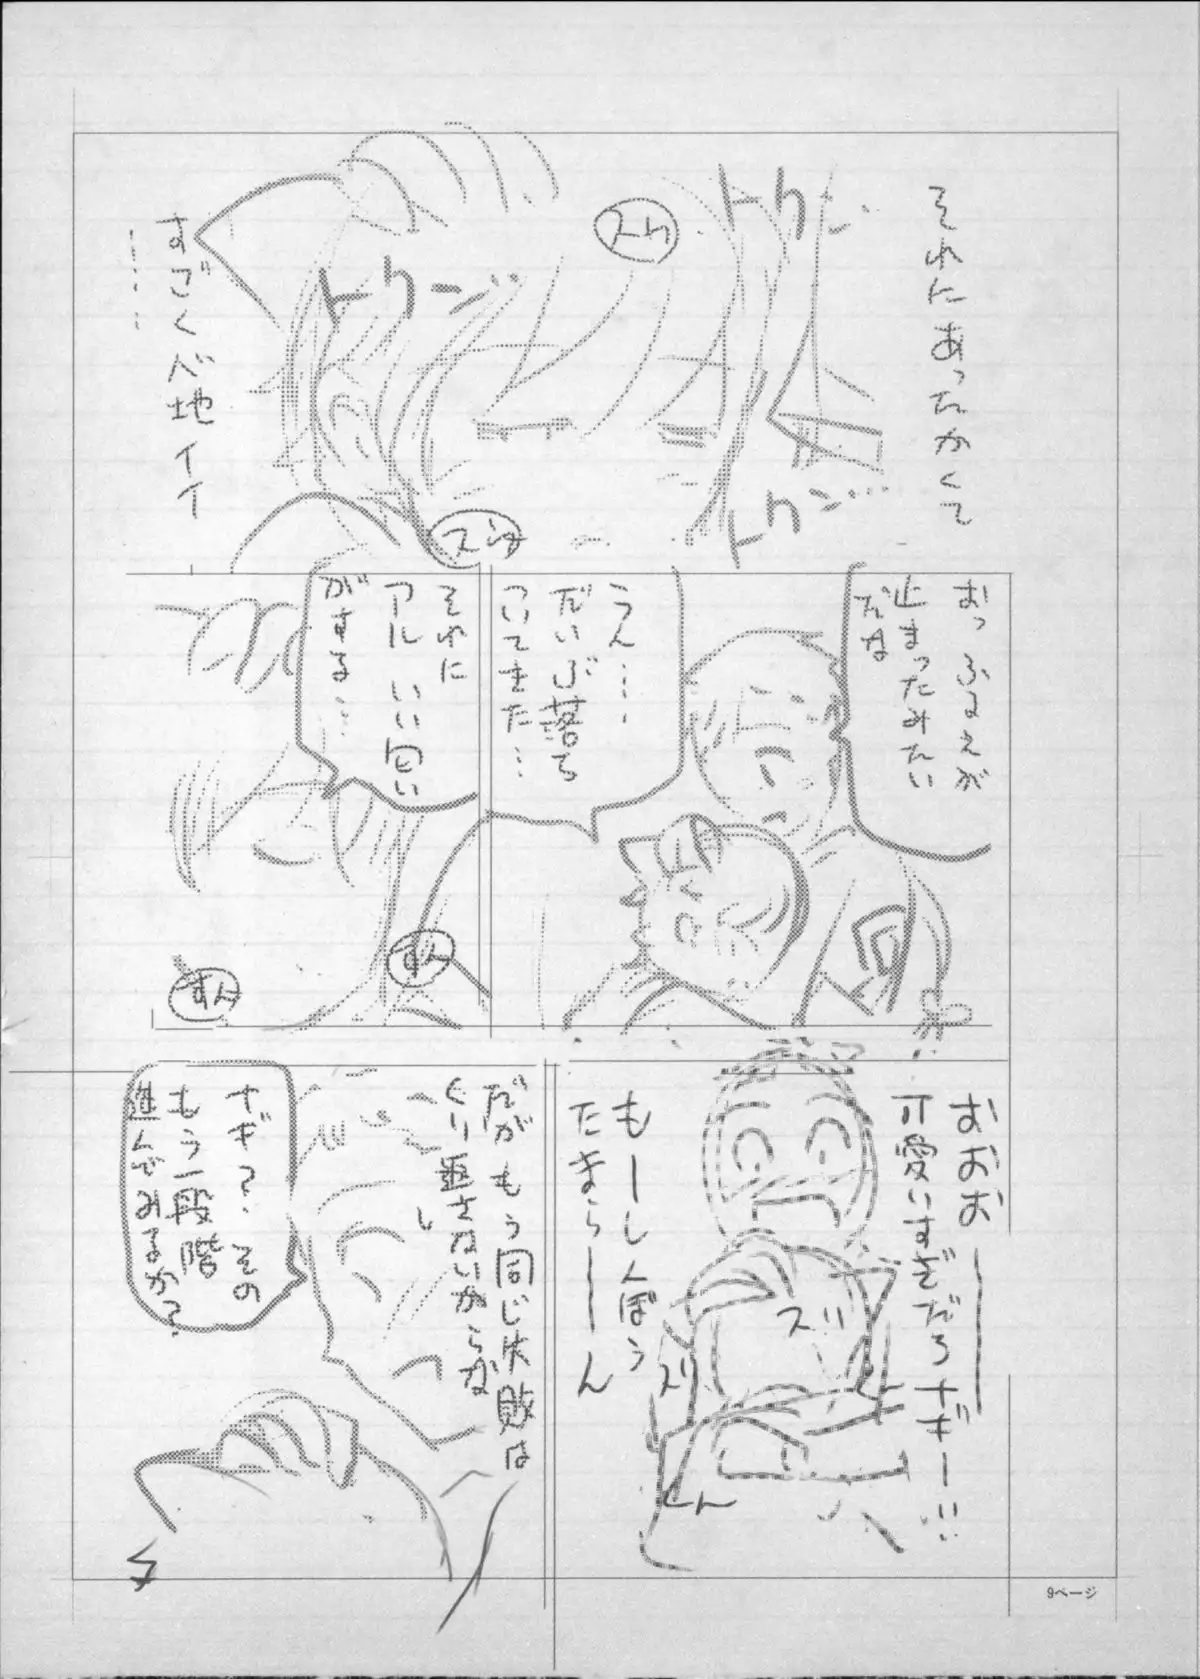 それにあったかくて
トクン…
スリ
トクン…
トクン…
すごく心地イイ
……
スリ
おっ ふるえが
止まったみたい
だな
うん……
だいぶ落ち
ついてきた…
それに
アル いい匂い
がする…
すん
すん
おおおー
可愛いすぎだろナギー!!!
もーしんぼう
たまらーーん
スリ
スリ
だがもう同じ失敗は
くり返さないからな
ナギ? その
もう一段階
進んでみるか?
9ページ